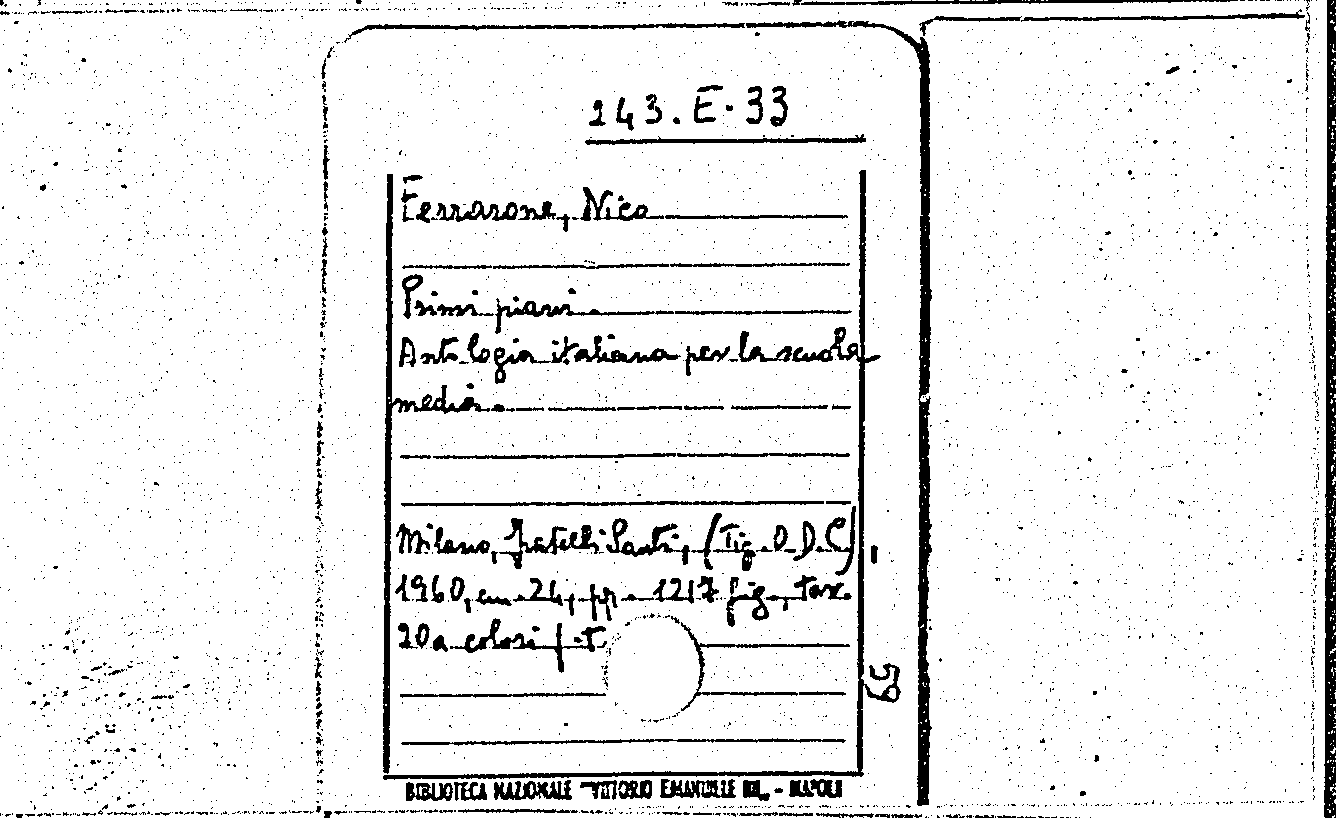 243.E.33
Ferrarone, Nico
Primi piani.
Antologia italiana per la scuola
media.
Milano, Fratelli Santi, (Tig. O.D.C),
1960, cm. 24, pp. 1217 fig., tav.
20 a colori f.t.
59
BIBLIOTECA NAZIONALE "VITTORIO EMANUELE III" - NAPOLI